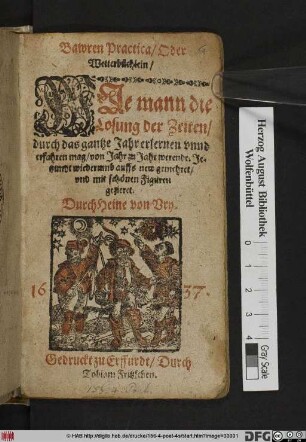 Bawren Practica/ Oder
Wetterbüchlein/
Wie mann die
Losung der Zeiten/
durch das gantze Jahr erlernen vnnd
erfahren mag/ von Jahr zu Jahr werende. Je-
tzundt wiederumb auffs new gemehret/
vnd mit schönen Figuren
gezieret.
Durch Heine von Vry.
16 37.
Gedruckt zu Erffurdt/ Durch
Tobiam Fritzschen.
Herzog August Bibliothek
Wolfenbüttel
0
1
2
3
4
Gray Scale